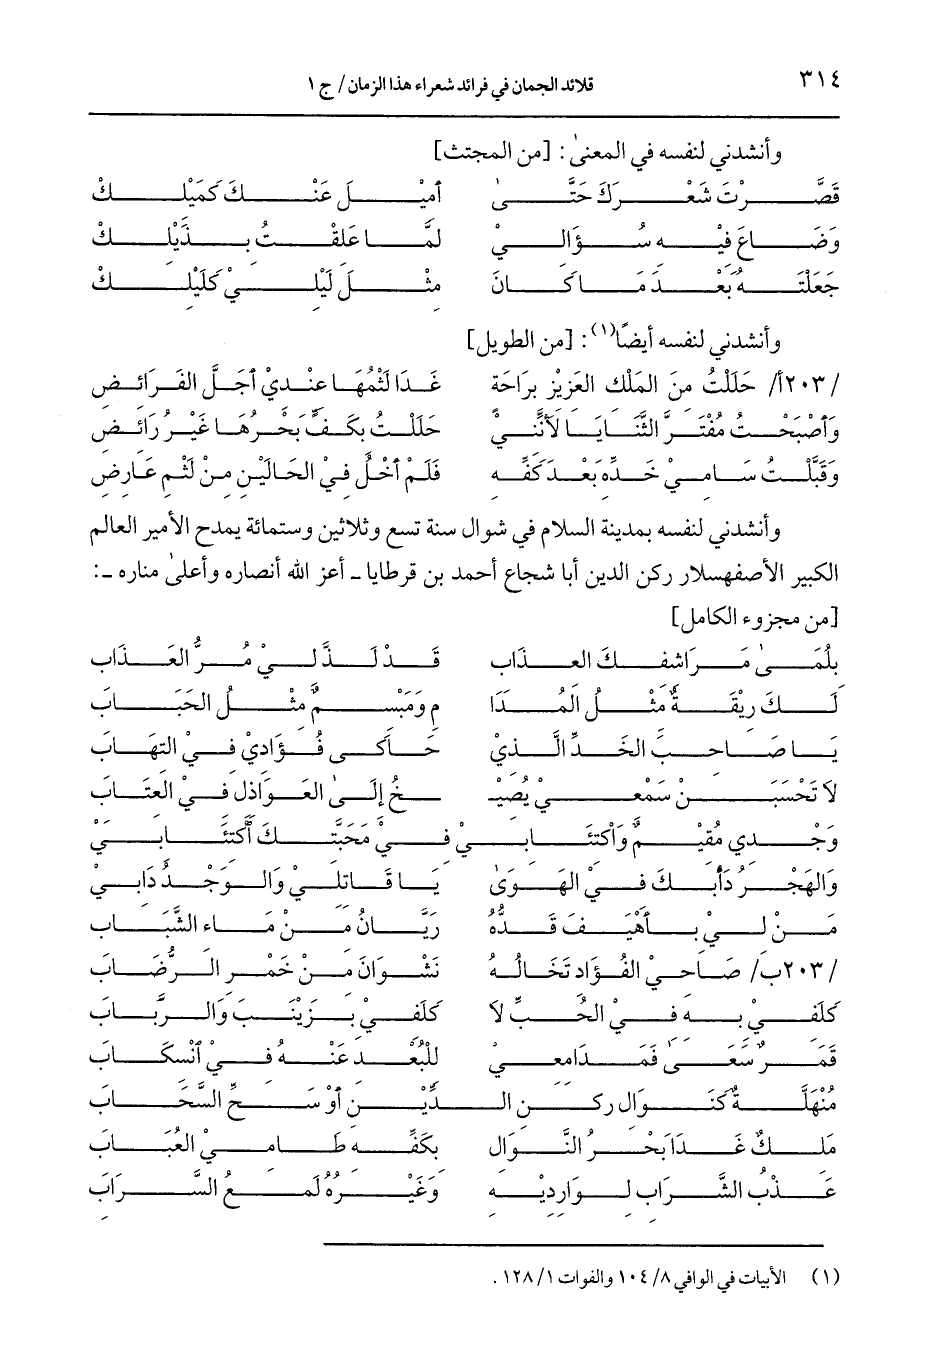 ٣١٤
قلائد الجمان في فرائد شعراء هذا الزمان / ج ١
وأنشدني لنفسه في المعنىٰ : [من المجتث]
قَصَّرْتَ شَعْرَكَ حَتَّىٰ أَمِيْلَ عَنْكَ كَمَيْلِكْ
وَضَاعَ فِيْهِ سُؤَالِيْ لَمَّا عَلِقْتُ بِذَيْلِكْ
جَعَلْتَهُ بَعْدَ مَا كَانَ مِثْلَ لَيْلِيْ كَلَيْلِكْ
وأنشدني لنفسه أيضًا(١) : [من الطويل]
/٢٠٣أ/ حَلَلْتُ مِنَ المَلْكِ العَزِيْزِ بِرَاحَةٍ غَدَا لَثْمُهَا عِنْدِيْ أَجَلَّ الفَرَائِضِ
وَأَصْبَحْتُ مُفْتَرَّ الثَّنَايَا لأَنَّنِيْ حَلَلْتُ بِكَفٍّ بَحْرُهَا غَيْرُ رَائِضِ
وَقَبَّلْتُ سَامِيْ خَدِّهِ بَعْدَ كَفِّهِ فَلَمْ أَخْلُ فِيْ الحَالَيْنِ مِنْ لَثْمِ عَارِضِ
وأنشدني لنفسه بمدينة السلام في شوال سنة تسع وثلاثين وستمائة يمدح الأمير العالم
الكبير الأصفهسلار ركن الدين أبا شجاع أحمد بن قرطايا ـ أعز الله أنصاره وأعلىٰ مناره ـ :
[من مجزوء الكامل]
بِلُمَىٰ مَرَاشِفِكَ العِذَابِ قَدْ لَذَّ لِيْ مُرُّ العَذَابِ
لَكَ رِيْقَةٌ مِثْلُ المُدَا مِ وَمَبْسِمٌ مِثْلُ الحَبَابِ
يَا صَاحِبَ الخَدِّ الَّذِيْ حَاكَى فُؤَادِيْ فِيْ التِهَابِ
لاَ تَحْسَبَنْ سَمْعِيْ يُصِيْـ ـخُ إِلَىٰ العَوَاذِلِ فِيْ العِتَابِ
وَجْدِي مُقِيْمٌ وَاكْتِئَابِيْ فِيْ مَحَبَّتِكَ أكْتِئَابِيْ
وَالهَجْرُ دَأْبُكَ فِيْ الهَوَىٰ يَا قَاتِلِيْ وَالوَجْدُ دَابِيْ
مَنْ لِيْ بِأَهْيَفَ قَدُّهُ رَيَّانُ مِنْ مَاءِ الشَّبَابِ
/٢٠٣ب/ صَاحِيْ الفُؤَادِ تَخَالُهُ نَشْوَانَ مِنْ خَمْرِ الرُّضَابِ
كَلَفِيْ بِهِ فِيْ الحُبِّ لاَ كَلَفِيْ بِزَيْنَبَ وَالرَّبَابِ
قَمَرٌ سَعَىٰ فَمَدَامِعِيْ لِلْبُعْدِ عَنْهُ فِيْ أنْسِكَابِ
مُنْهَلَّةٌ كَنَوَالِ ركنِ الدِّيْنِ أَوْ سَحِّ السَّحَابِ
مَلِكٌ غَدَا بَحْرُ النَّوَالِ بِكَفِّهِ طَامِيْ العُبَابِ
عَذْبُ الشَّرَابِ لِوَارِدِيْهِ وَغَيْرُهُ لَمْعُ السَّرَابِ
(١) الأبيات في الوافي ٨/ ١٠٤ والفوات ١/ ١٢٨ .